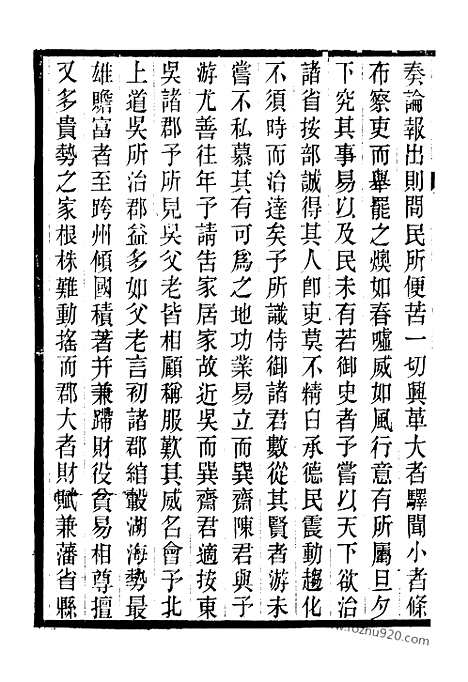 奏論報出則問民所便苦一切興革大者驛聞小者條
布察吏而舉罷之燠如春噓威如風行意有所屬旦夕
下究其事易以及民未有若御史者予嘗以天下欲治
諸省按部誠得其人卽吏莫不精白承德民震動趨化
不須時而治達矣予所識侍御諸君數從其賢者游未
嘗不私慕其有可為之地功業易立而巽齋陳君與子
游尤善往年予請告家居家故近吳而巽齋君適按東
吳諸郡予所見吳父老皆相顧稱服歎其威名會予北
上道吳所治郡益多如父老言初諸郡綰轂湖海勢最
雄贍富者至跨州傾國積著并兼蹛財役貧易相尊擅
又多貴勢之家根株難動搖而郡大者財賦兼藩省縣
www.fozhu920.com